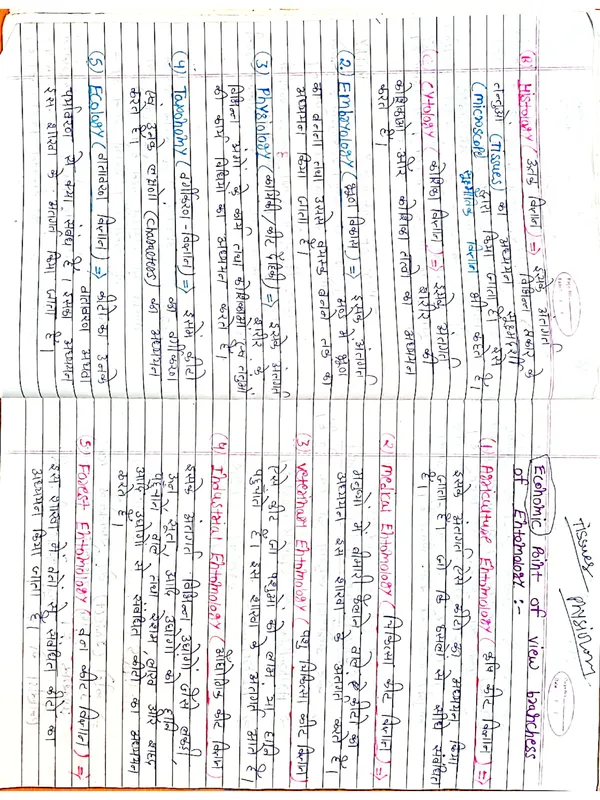 (B) Histology (उत्तक विज्ञान) ⇒ इसके अंतर्गत
तन्तुओं (Tissues) का अध्ययन विभिन्न प्रकार के
(microscope) द्वारा किया जाता है। इसे
विज्ञान भी कहते है।
(C) Cytology (कोशिका विज्ञान) ⇒ इसके अंतर्गत
शरीर की
कोशिकाओं और कोशिका तत्वों का अध्ययन
करते है।
(2) Embryology (भ्रूण विकास) ⇒ इसके अंतर्गत
अण्डे में भ्रूण
का बनना तथा उससे वयस्क बनने तक का
अध्ययन किया जाता है।
(3) Physiology (कार्यिकी/कीट दैहिकी) ⇒ इसके अंतर्गत
शरीर के
विभिन्न अंगों के कार्य तथा कोशिकाओं एवं तन्तुओं
की कार्य विधियों का अध्ययन करते है।
(4) Taxonomy (वर्गीकरण-विज्ञान) ⇒ इसमें कीटों
का वर्गीकरण
एवं उनके लक्षणों (Characters) का अध्ययन
करते है।
(5) Ecology (वातावरण विज्ञान) ⇒ कीटों का उनके
वातावरण अथवा
पर्यावरण से क्या संबंध है। इसका अध्ययन
इस शाखा के अंतर्गत किया जाता है।
Tissues
Economic Point of view branchess
of Entomology :-
(1) Agriculture Entomology (कृषि कीट विज्ञान) ⇒
इसके अंतर्गत ऐसे कीटों का अध्ययन किया
जाता है। जो कि फसलों से सीधे संबंधित
है।
(2) medical Entomology (चिकित्सा कीट विज्ञान) ⇒
मनुष्यों में बीमारी फैलाने वाले कीटों का
अध्ययन इस शाखा के अंतर्गत करते है।
(3) Veterinary Entomology (पशु चिकित्सा कीट विज्ञान)
ऐसे कीट जो पशुओं को लाभ और हानि
पहुंचाते है। इस शाखा के अंतर्गत आते है।
(4) Industrial Entomology (औद्योगिक कीट विज्ञान)
इसके अंतर्गत विभिन्न उद्योगों जैसे लकड़ी,
ऊन, सूत आदि उद्योगों को हानि
पहुंचाने वाले तथा रेशम, लाख और शहद
आदि उद्योगों से संबंधित कीटों का अध्ययन
करते है।
(5) Forest Entomology (वन कीट विज्ञान) ⇒
इस शाखा में वनों से संबंधित कीटों का
अध्ययन किया जाता है।